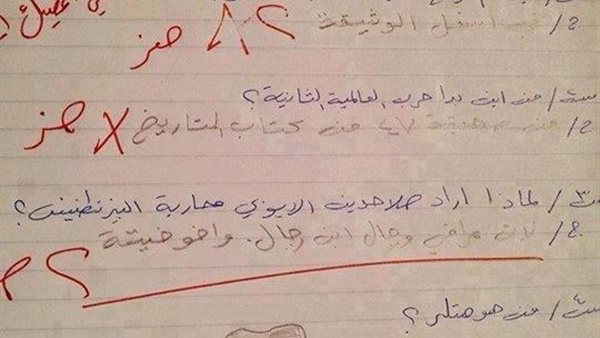 ج/ في اسفل الوثيقة ؟ ٨ صفر
س٢/ من اين بدا حرب العالمية الثانية؟
ج/ من صفحة ٧٤ من كتاب التاريخ X صفر
س٣/ لماذا اراد صلاحدين الايوبي محاربة البيزنطنين؟
ج/ لان عراقي ورجال ابن رجال. واخو خيتة ؟
س٤/ من هو هتلر؟